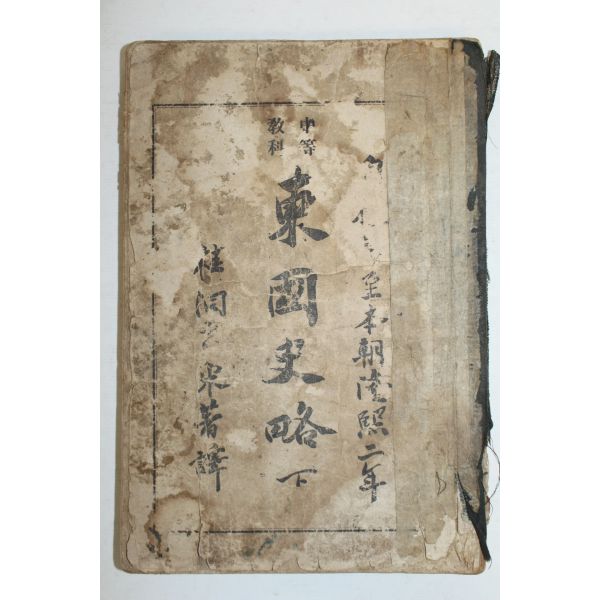 至本朝隆熙二年
中等
教科
東國史略 下
桂洞玄采著譯